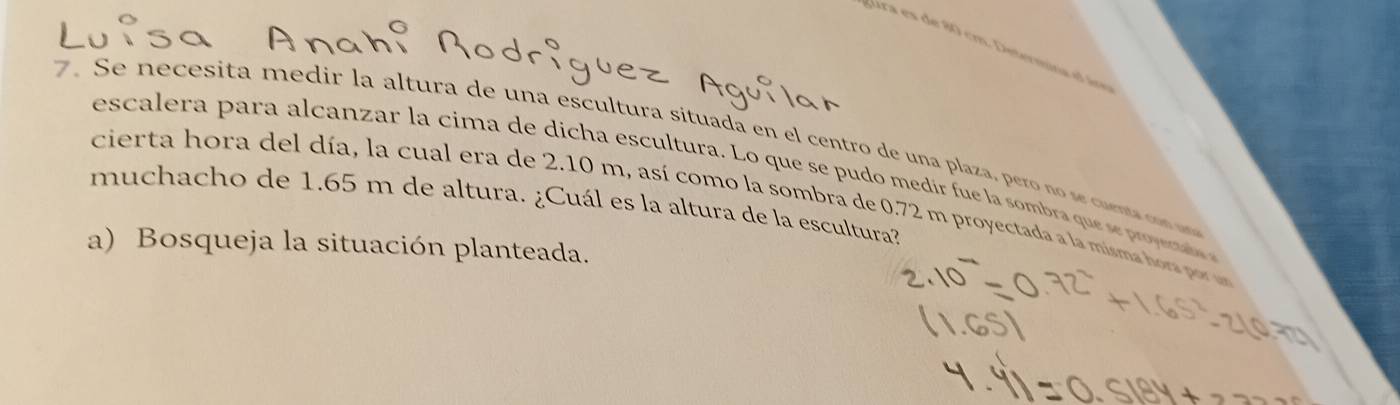 gura es de 80 cm. Determina el área
Luisa Anahi Rodriguez Aguilar
7. Se necesita medir la altura de una escultura situada en el centro de una plaza, pero no se cuenta con una
escalera para alcanzar la cima de dicha escultura. Lo que se pudo medir fue la sombra que se proyectaba a
cierta hora del día, la cual era de 2.10 m, así como la sombra de 0.72 m proyectada a la misma hora por un
muchacho de 1.65 m de altura. ¿Cuál es la altura de la escultura?
a) Bosqueja la situación planteada.
2.10² = 0.72² + 1.65² - 2(0.72)
(1.65)
4.41 = 0.5184 +